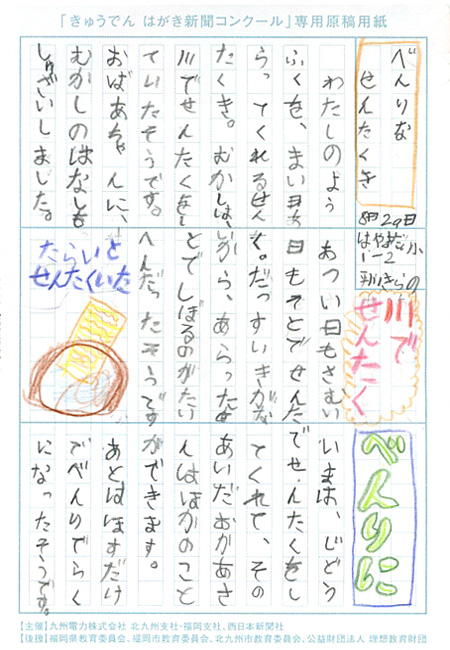 「きゅうでん はがき新聞コンクール」専用原稿用紙
べんりな
せんたくき
8月29日
1-2
わたしのよう
ふくを、まい日あ
らってくれるせん
たくき。むかしは、
川でせんたくをし
ていたそうです。
おばあちゃんに、
むかしのはなしを
しゅざいしました。
川で
せんたく
あつい日もさむい
日もそとでせんた
く。だっすいきがな
いから、あらったあ
とでしぼるのがたい
へんだったそうです
たらいと
せんたくいた
べんりに
いまは、じどう
でせんたくをし
てくれて、その
あいだおかあさ
んはほかのこと
ができます。
あとはほすだけ
でべんりでらく
になったそうです。
【主催】九州電力株式会社 北九州支社・福岡支社、西日本新聞社
【後援】福岡県教育委員会、福岡市教育委員会、北九州市教育委員会、公益財団法人 理想教育財団